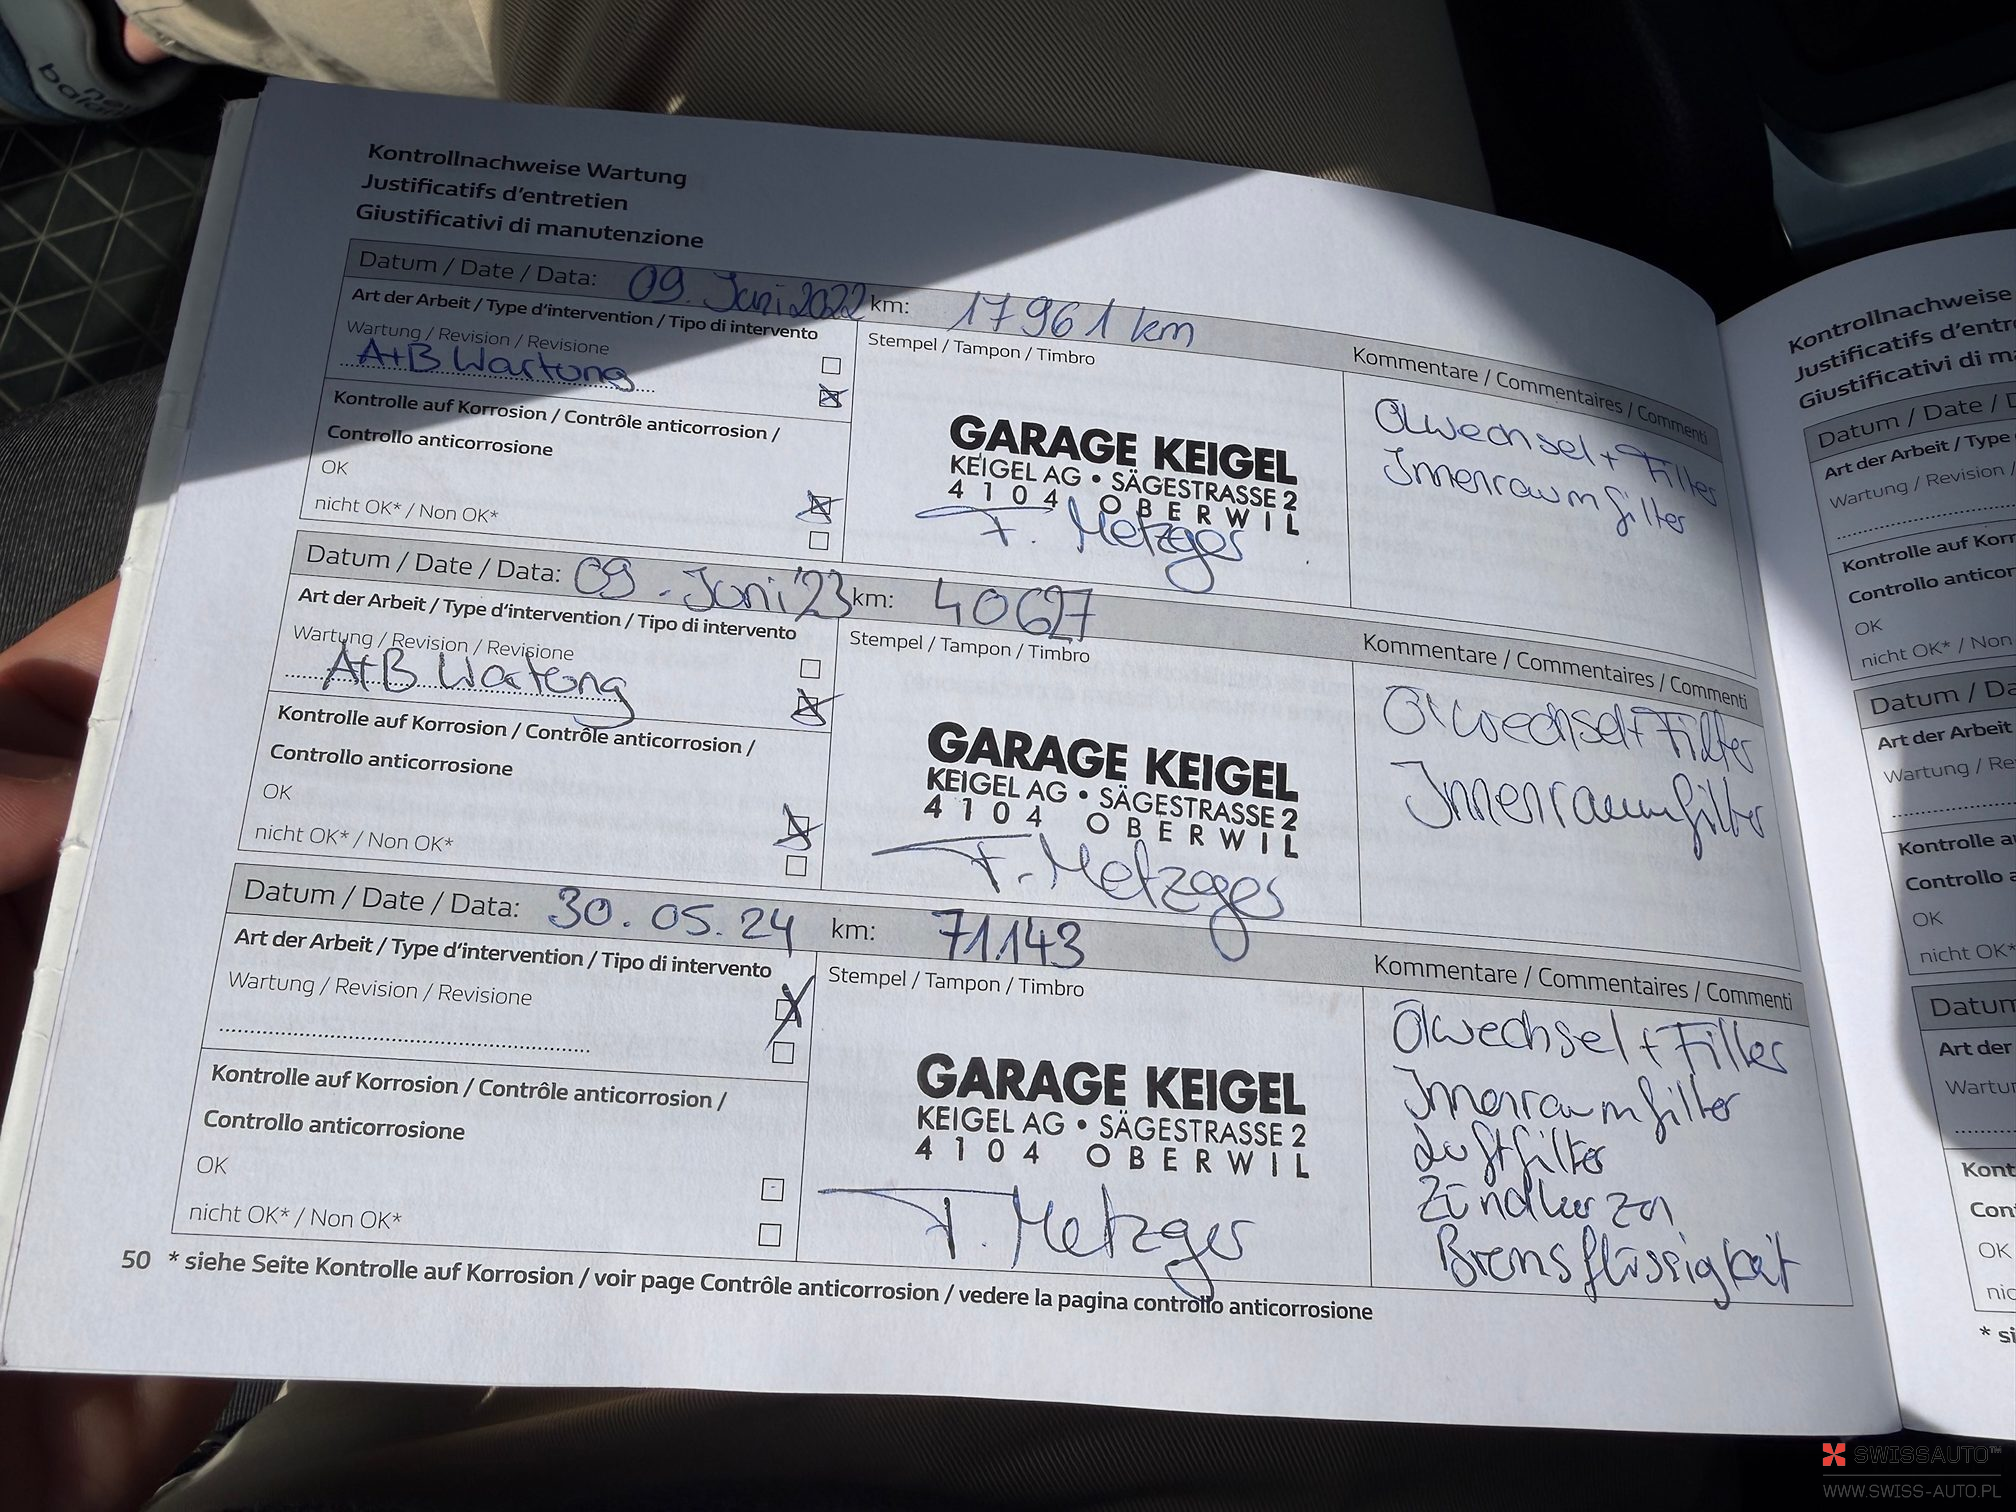 new
balance
Kontrollnachweise Wartung
Justificatifs d'entretien
Giustificativi di manutenzione
Datum / Date / Data: 09. Juni 2022 km: 17961 km
Art der Arbeit / Type d'intervention / Tipo di intervento
Wartung / Revision / Revisione
A+B Wartung
Kontrolle auf Korrosion / Contrôle anticorrosion /
Controllo anticorrosione
OK
nicht OK* / Non OK*
Stempel / Tampon / Timbro
GARAGE KEIGEL
KEIGEL AG • SÄGESTRASSE 2
4104 OBERWIL
F. Metzger
Kommentare / Commentaires / Commenti
Ölwechsel + Filter
Innenraumfilter
Datum / Date / Data: 09. Juni '23 km: 40627
Art der Arbeit / Type d'intervention / Tipo di intervento
Wartung / Revision / Revisione
A+B Wartung
Kontrolle auf Korrosion / Contrôle anticorrosion /
Controllo anticorrosione
OK
nicht OK* / Non OK*
Stempel / Tampon / Timbro
GARAGE KEIGEL
KEIGEL AG • SÄGESTRASSE 2
4104 OBERWIL
F. Metzger
Kommentare / Commentaires / Commenti
Ölwechsel + Filter
Innenraumfilter
Datum / Date / Data: 30.05.24 km: 71.143
Art der Arbeit / Type d'intervention / Tipo di intervento
Wartung / Revision / Revisione
Kontrolle auf Korrosion / Contrôle anticorrosion /
Controllo anticorrosione
OK
nicht OK* / Non OK*
Stempel / Tampon / Timbro
GARAGE KEIGEL
KEIGEL AG • SÄGESTRASSE 2
4104 OBERWIL
F. Metzger
Kommentare / Commentaires / Commenti
Ölwechsel + Filter
Innenraumfilter
Luftfilter
Zündkerzen
Bremsflüssigkeit
50 * siehe Seite Kontrolle auf Korrosion / voir page Contrôle anticorrosion / vedere la pagina controllo anticorrosione
Kontrollnachweise
Justificatifs d'entre
Giustificativi di ma
Datum / Date / D
Art der Arbeit / Type
Wartung / Revision /
Kontrolle auf Korr
Controllo anticorro
OK
nicht OK* / Non
Datum / Da
Art der Arbeit
Wartung / Re
Kontrolle a
Controllo a
OK
nicht OK*
Datum
Art der
Wartu
Kont
Con
OK
nic
* si
SWISSAUTO™
WWW.SWISS-AUTO.PL